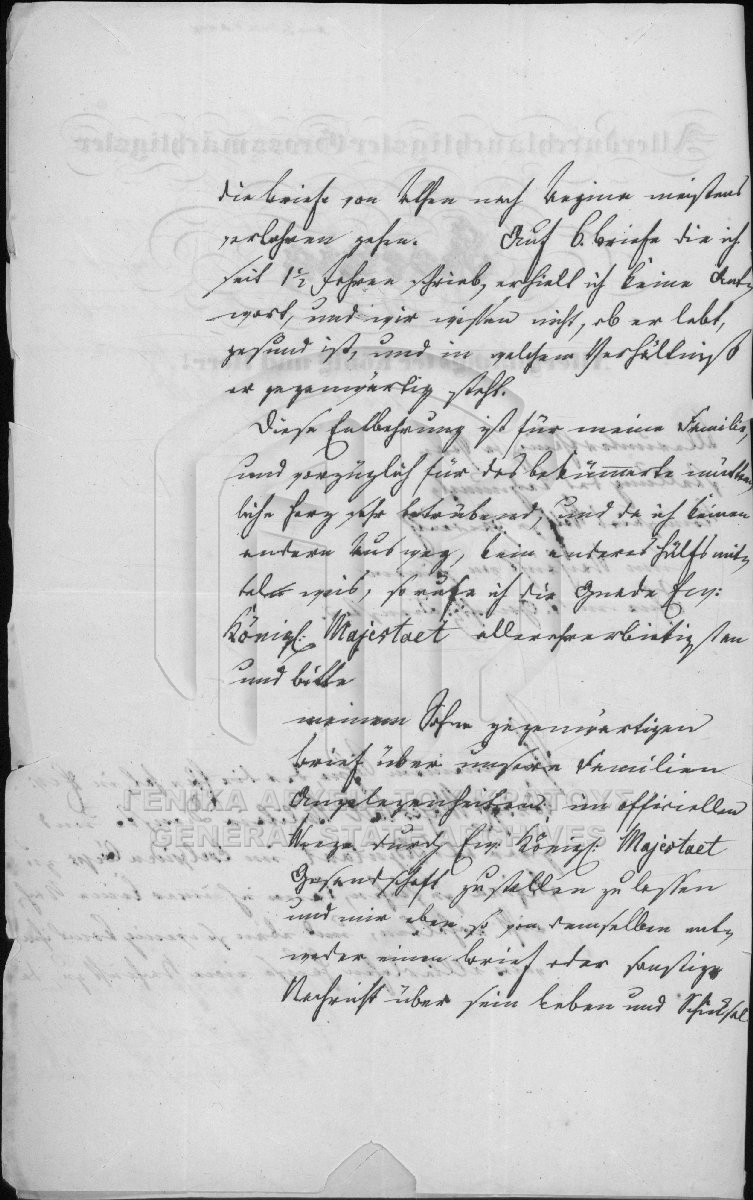 die Briefe von Athen nach Aegina meistens
verlohren gehen. Auf 6. Briefe die ich
seit 1½ Jahren schrieb, erhielt ich keine Ant¬
wort, und wir wissen nicht, ob er lebt,
gesund ist, und in welchem Verhältniß
er gegenwärtig steht.
Diese Entbehrung ist für meine Familie,
und vorzüglich für das bekümmerte mütter¬
liche Herz sehr betrübend, und da ich keinen
andern Ausweg, kein anderes Hülfsmit¬
tel weis, so rufe ich die Gnade Euer:
Königl: Majestaet allerehrerbietigst an
und bitte
meinem Sohne gegenwärtigen
Brief über unsere Familien
Angelegenheiten im officiellen
Wege durch Euer Königl: Majestaet
Gesandschaft zustellen zu lassen
und mir eben so von demselben ent¬
weder einen Brief oder sonstige
Nachricht über sein Leben und Schicksal
ΓΕΝΙΚΑ ΑΡΧΕΙΑ ΤΟΥ ΚΡΑΤΟΥΣ
GENERAL STATE ARCHIVES